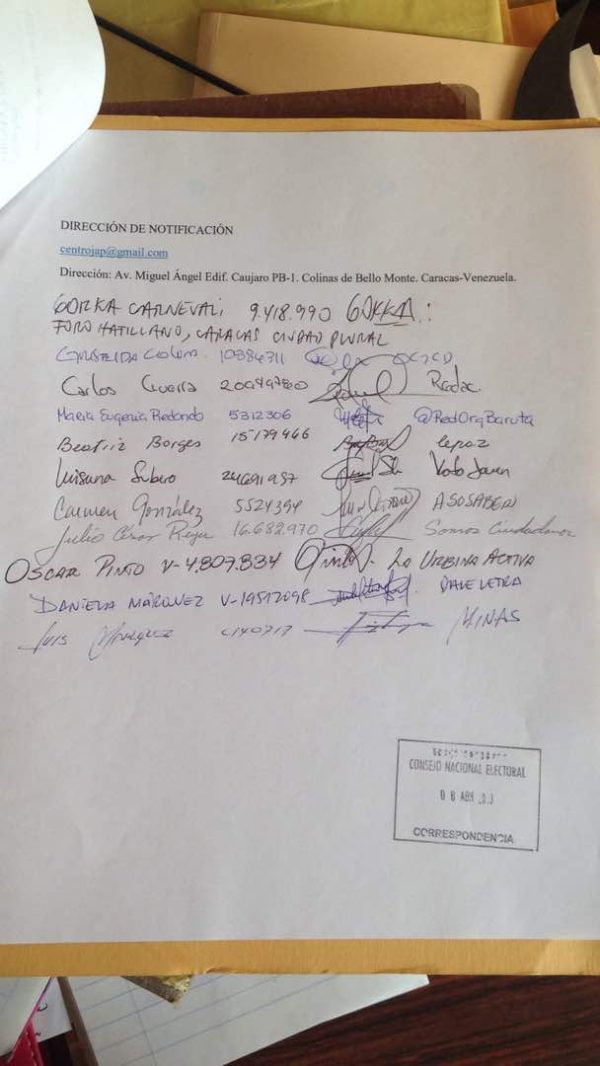 DIRECCIÓN DE NOTIFICACIÓN
centrojap@gmail.com
Dirección: Av. Miguel Ángel Edif. Caujaro PB-1. Colinas de Bello Monte. Caracas-Venezuela.
GORKA CARNEVALI 9.418.990 GORKA
FORO HATILLANO, CARACAS CIUDAD PLURAL
10384711
Carlos Guerra Redac
Maria Eugenia Redondo 5312306 @RedOrgBaruta
Beatriz Borges 15179466 Cepaz
Luisana Subero Voto Joven
Carmen González 5524394 ASOSABER
Julio César 16.682.970 Somos Ciudadanos
OSCAR PINTO V-4.807.834 LA URBINA ACTIVA
DANIELA MÁRQUEZ DALE LETRA
Luis MINAS
CONSEJO NACIONAL ELECTORAL
CORRESPONDENCIA